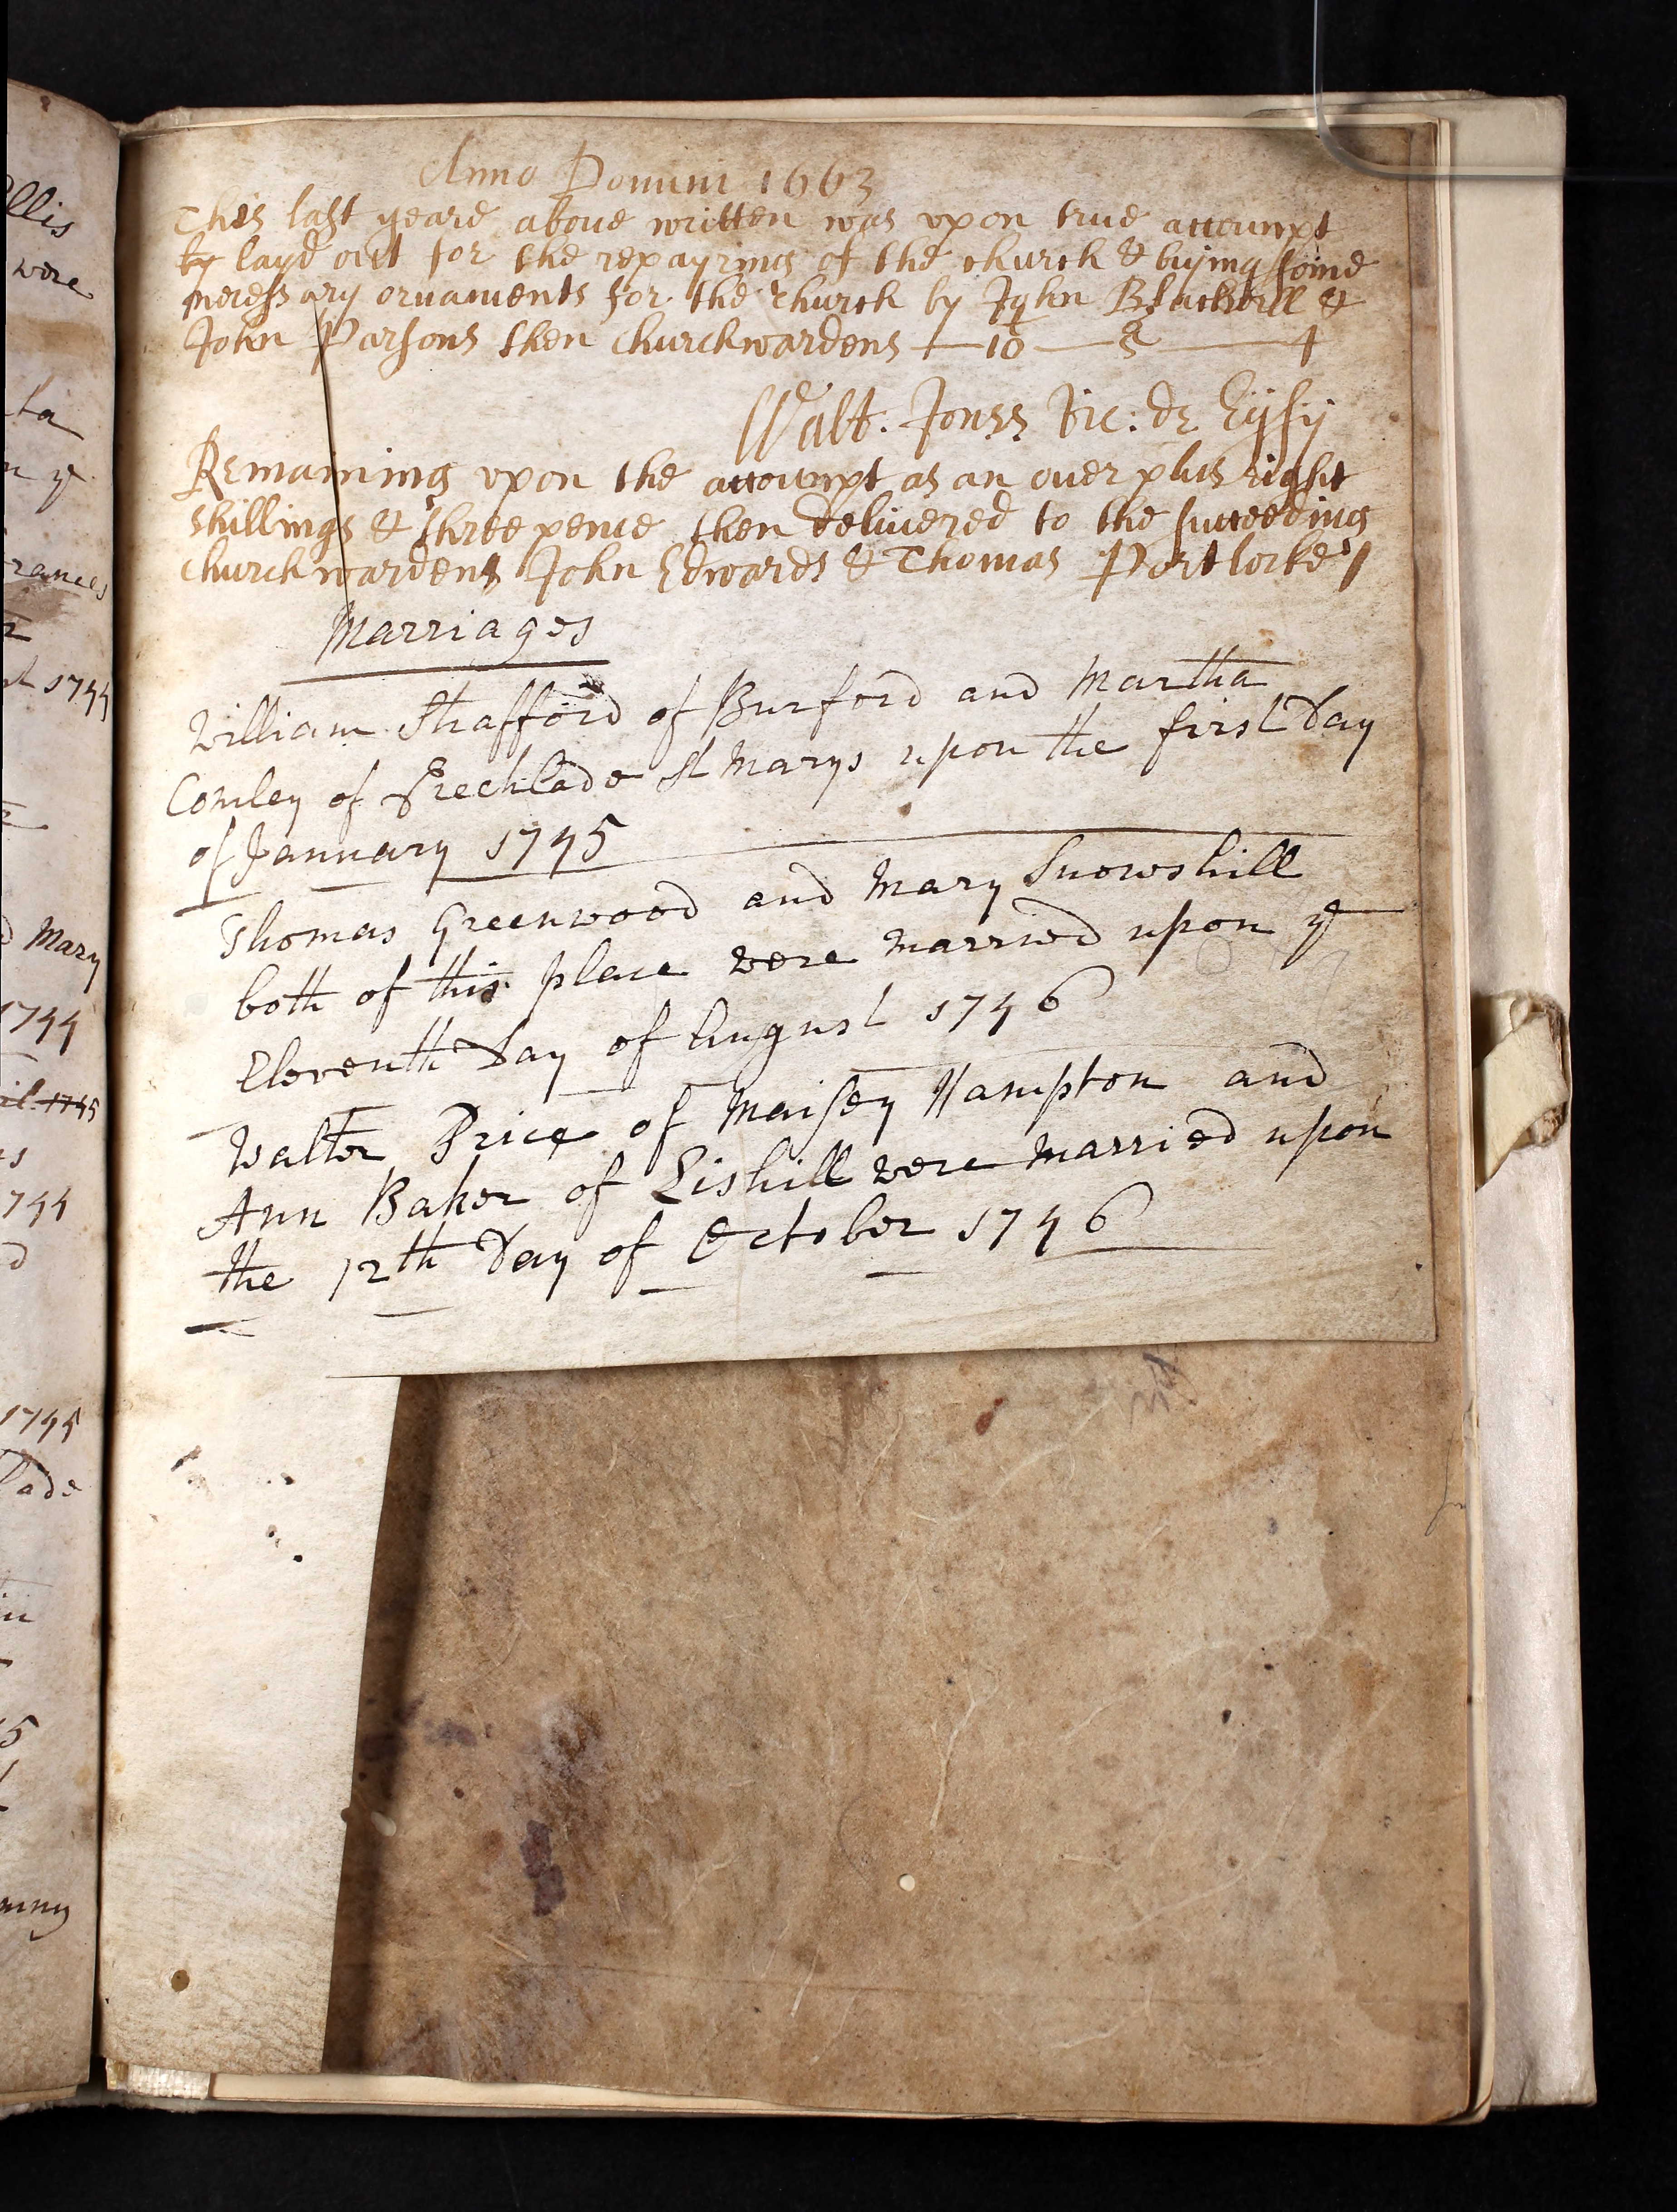 Anno Domini 1663
This last yeare above written was vpon true accoumpt
by layd out for the repayring of the church & buying some
necessary ornaments for the church by John Blackwell &
John Parsons then churchwardens — 10 — 5 — 4
Walt. Jones Vic: de Eysy
Remaining vpon the accoumpt as an overplus eight
shillings & three pence then delivered to the succeeding
churchwardens John Edwards & Thomas Portlocke
Marriages
William Strafford of Burford and Martha
Comley of Creeklade St Marys upon the first Day
of January 1745
Thomas Greenwood and Mary Snowshill
both of this place were married upon ye
Eleventh Day of August 1746
Walter Price of Maisey Hampton and
Ann Baker of Lishill were married upon
the 12th Day of October 1746
ollis
were
rances
1744
Mary
1744
1745
1744
1745
lade
5